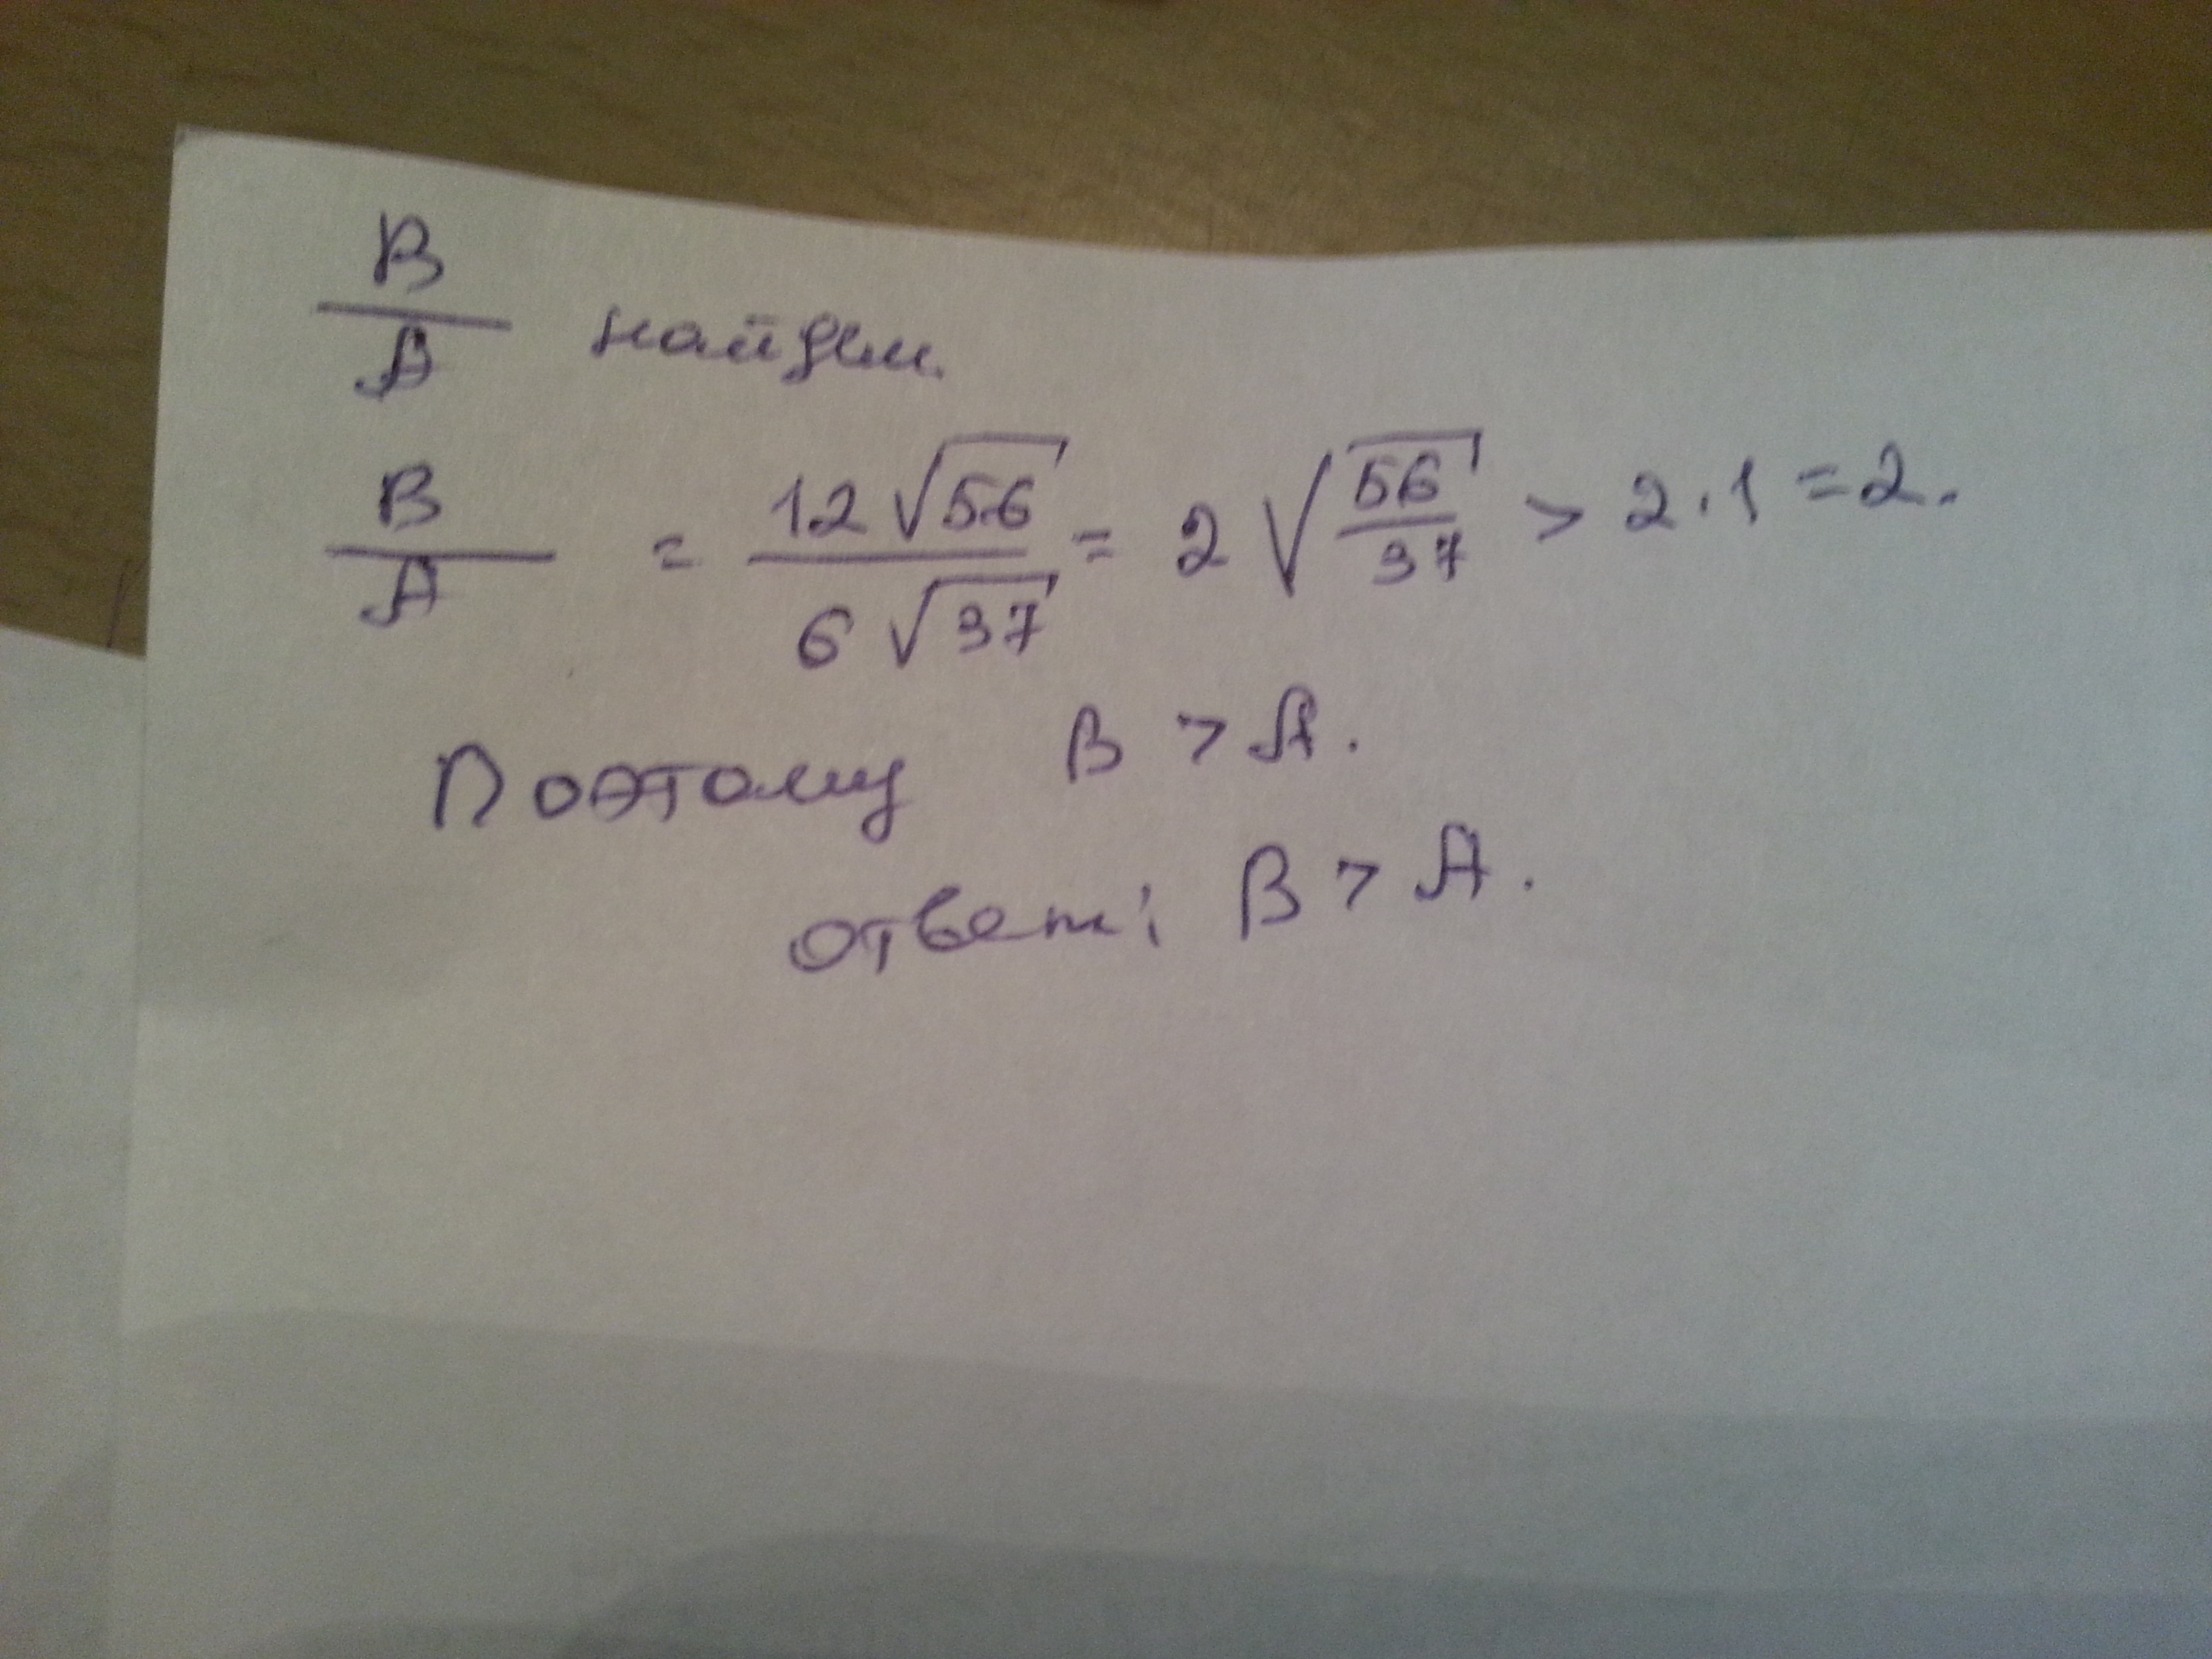 B/A найдем.
B/A = 12√56 / 6√37 = 2√(56/37) > 2·1 = 2.
Поэтому B > A.
ответ: B > A.